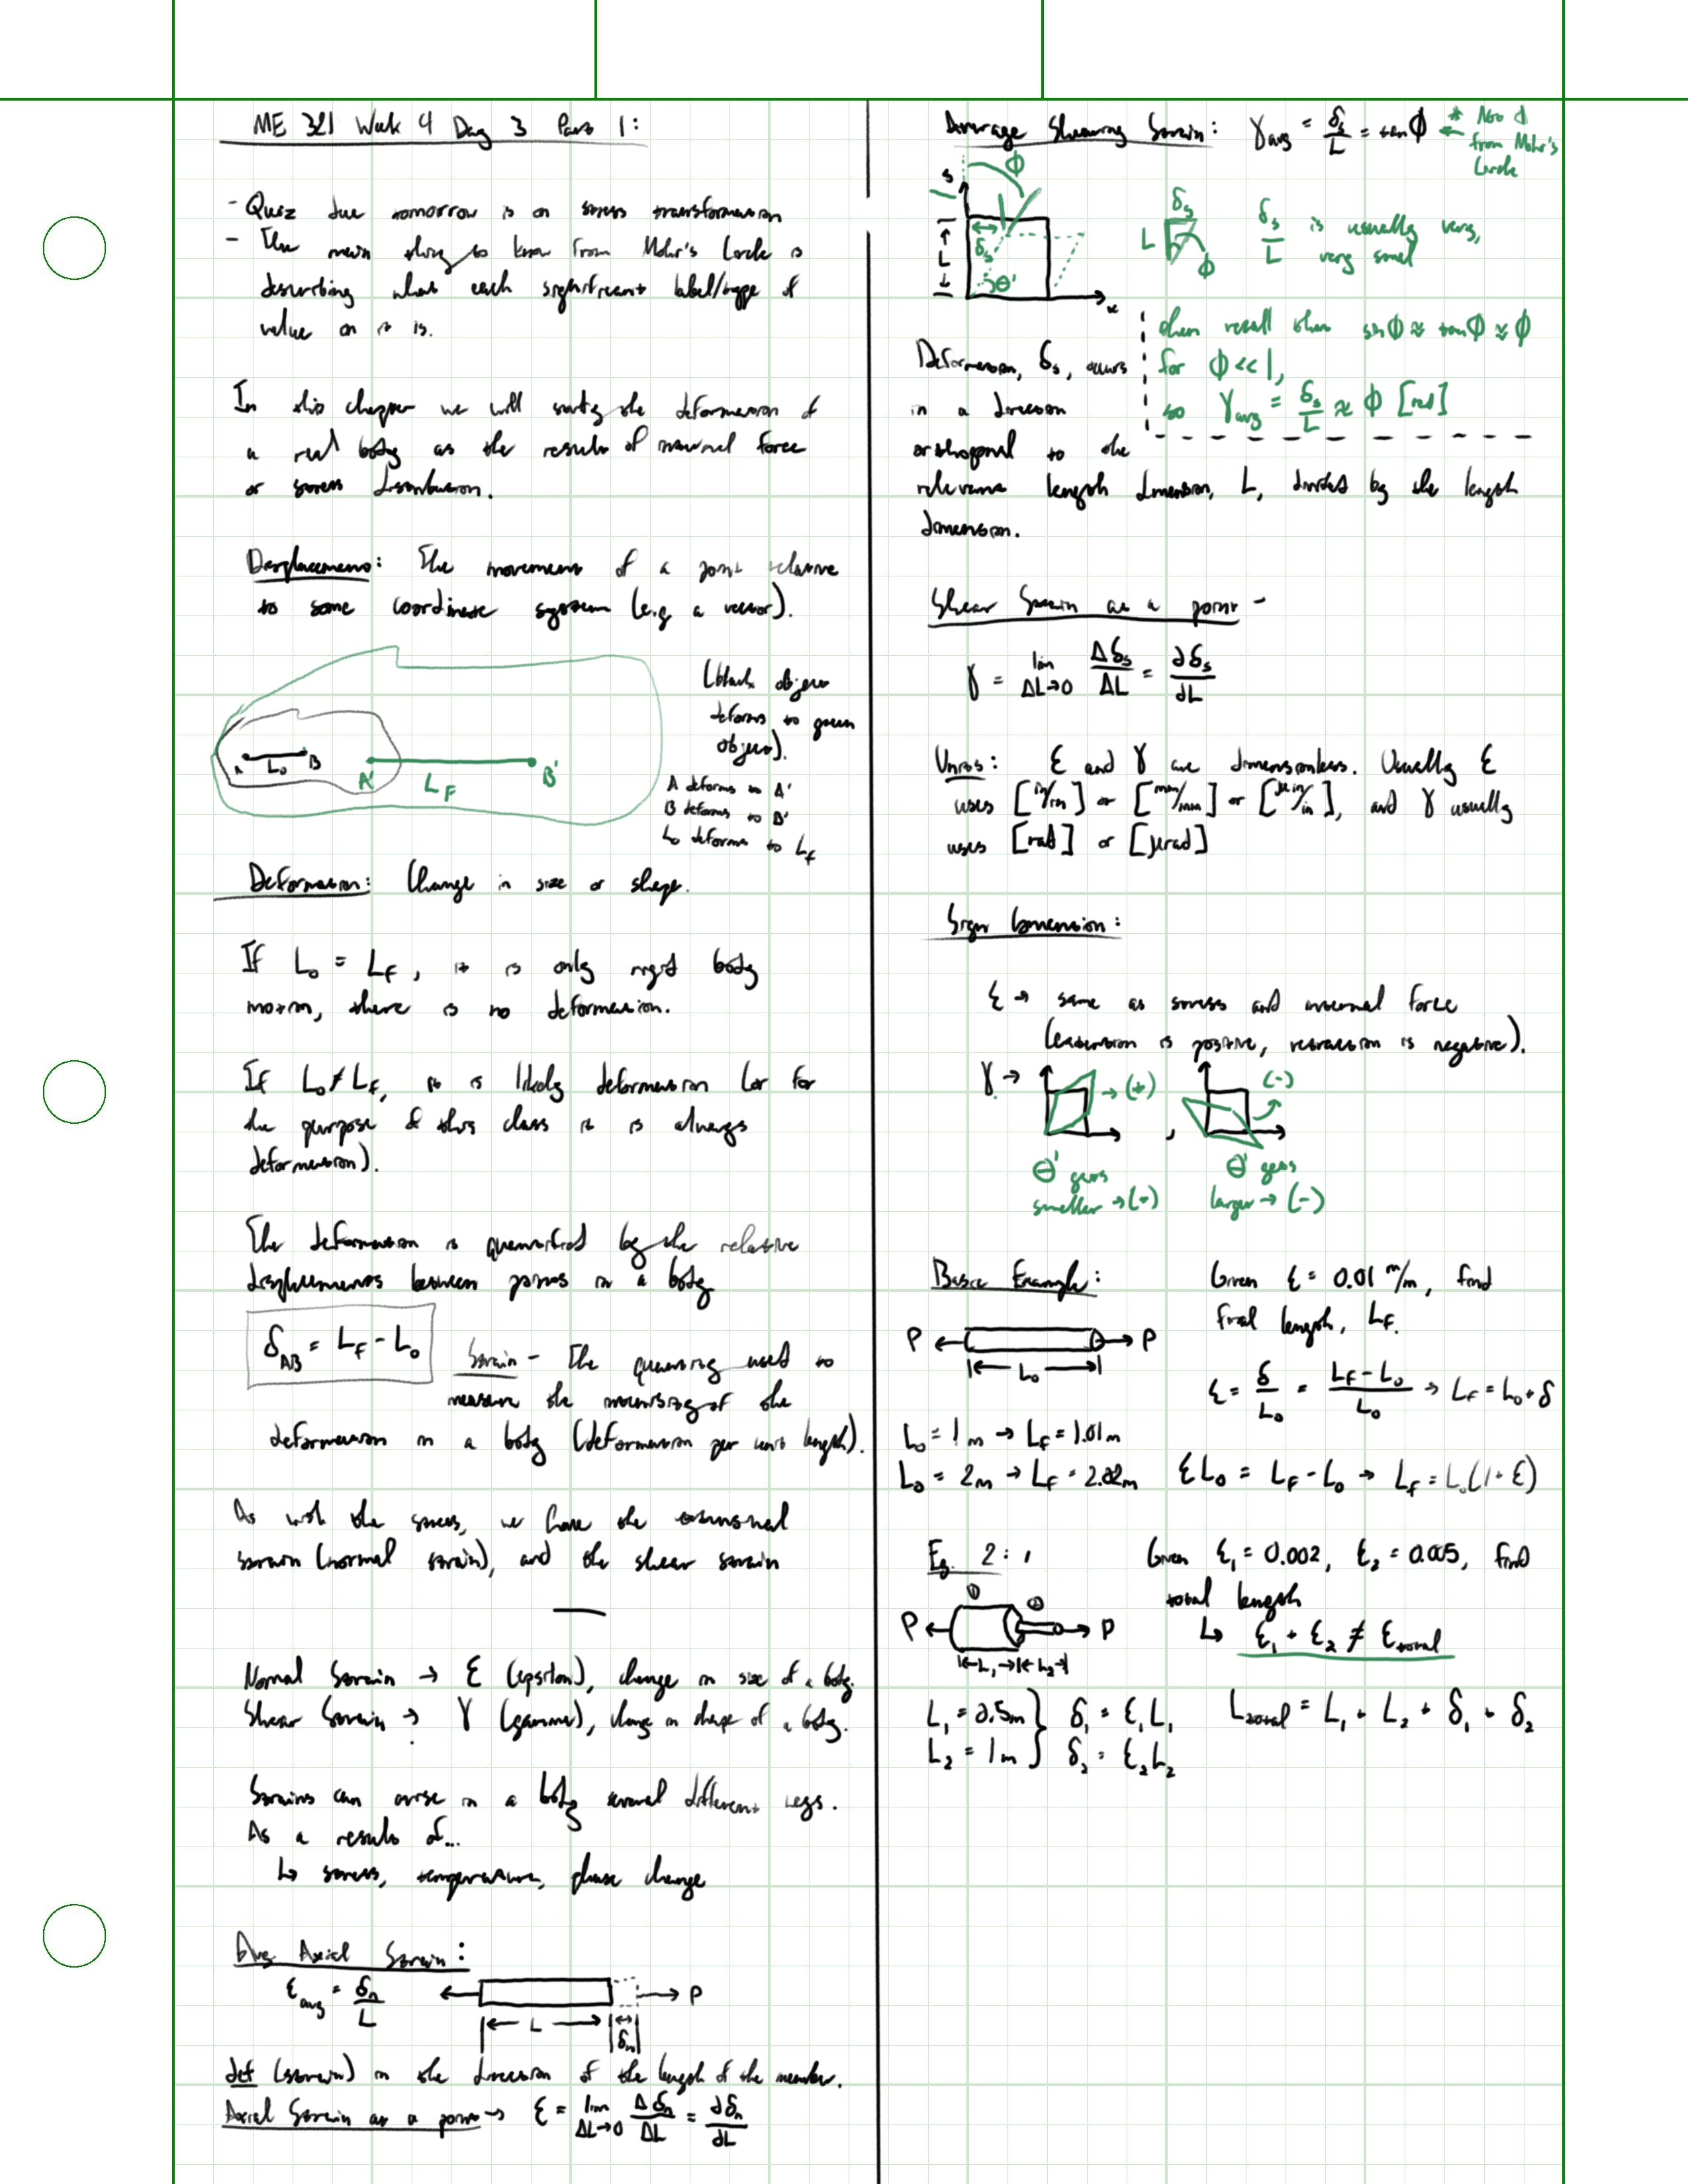 ME 321 Week 4 Day 3 Part 1:
- Quiz due tomorrow is on stress transformation
- The main thing to know from Mohr's Circle is
describing what each significant label/type of
value on it is.
In this chapter we will study the deformation of
a real body as the results of internal force
or stress distribution.
Displacement: The movement of a point relative
to some coordinate system (e.g. a vector).
(black object
deforms to green
object).
A L₀ B
A' L_F B'
A deforms to A'
B deforms to B'
L₀ deforms to L_f
Deformation: Change in size or shape.
If L₀ = L_F, it is only rigid body
motion, there is no deformation.
If L₀ ≠ L_F, it is likely deformation (or for
the purpose of this class it is always
deformation).
The deformation is quantified by the relative
displacements between points in a body
δ_AB = L_F - L₀
Strain - The quantity used to
measure the intensity of the
deformation in a body (deformation per unit length).
As with the stress, we have the extensional
strain (normal strain), and the shear strain
Normal Strain → ε (epsilon), change in size of a body.
Shear Strain → γ (gamma), change in shape of a body.
Strains can arise in a body several different ways.
As a results of...
↳ stress, temperature, phase change
Avg Axial Strain:
ε_avg = δ_n / L
P
L
δ_n
def (strain) in the direction of the length of the member.
Axial Strain at a point → ε = lim ΔL→0 Δδ_n / ΔL = ∂δ_n / dL
Average Shearing Strain: γ_avg = δ_s / L = tan ϕ ← * Not ϕ
from Mohr's
Circle
s ϕ
L δ_s θ' x
δ_s L ϕ
δ_s / L is usually very,
very small
then recall then sin ϕ ≈ tan ϕ ≈ ϕ
for ϕ << 1,
so γ_avg = δ_s / L ≈ ϕ [rad]
Deformation, δ_s, occurs
in a direction
orthogonal to the
relevant length dimension, L, divided by the length
dimension.
Shear Strain at a point -
γ = lim ΔL→0 Δδ_s / ΔL = ∂δ_s / dL
Units: ε and γ are dimensionless. Usually ε
uses [in/in] or [mm/mm] or [μin/in], and γ usually
uses [rad] or [μrad]
Sign Convention:
ε → same as stress and internal force
(extension is positive, retraction is negative).
γ → → (+) , (-)
θ' gets
smaller → (+)
θ' gets
larger → (-)
Basic Example:
Given ε = 0.01 m/m, find
final length, L_F.
P P
L₀
ε = δ / L₀ = (L_F - L₀) / L₀ → L_F = L₀ + δ
L₀ = 1m → L_F = 1.01m
L₀ = 2m → L_F = 2.02m
εL₀ = L_F - L₀ → L_F = L₀(1 + ε)
Eg. 2:
Given ε₁ = 0.002, ε₂ = 0.005, find
total length
↳ ε₁ + ε₂ ≠ ε_total
① ②
P P
L₁ L₂
L₁ = 2.5m } δ₁ = ε₁L₁
L₂ = 1m } δ₂ = ε₂L₂
L_total = L₁ + L₂ + δ₁ + δ₂